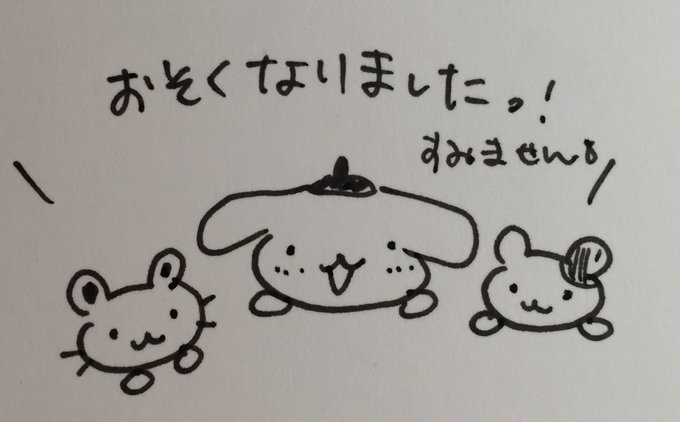 おそくなりましたっ!
すみません